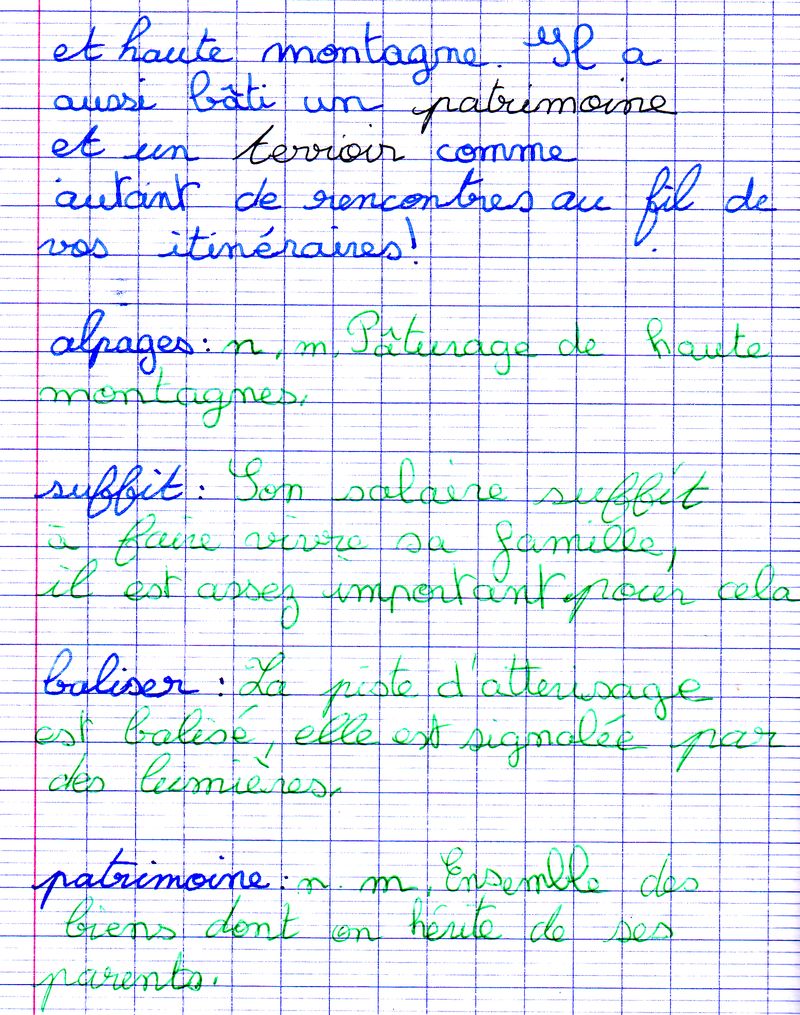 et haute montagne. Il a
aussi bâti un patrimoine
et un terroir comme
autant de rencontres au fil de
vos itinéraires!
alpages : n. m. Pâturage de haute
montagnes.
suffit : Son salaire suffit
à faire vivre sa famille,
il est assez important pour cela
baliser : La piste d'atterisage
est balisé, elle est signalée par
des lumières.
patrimoine : n. m. Ensemble des
biens dont on hérite de ses
parents.